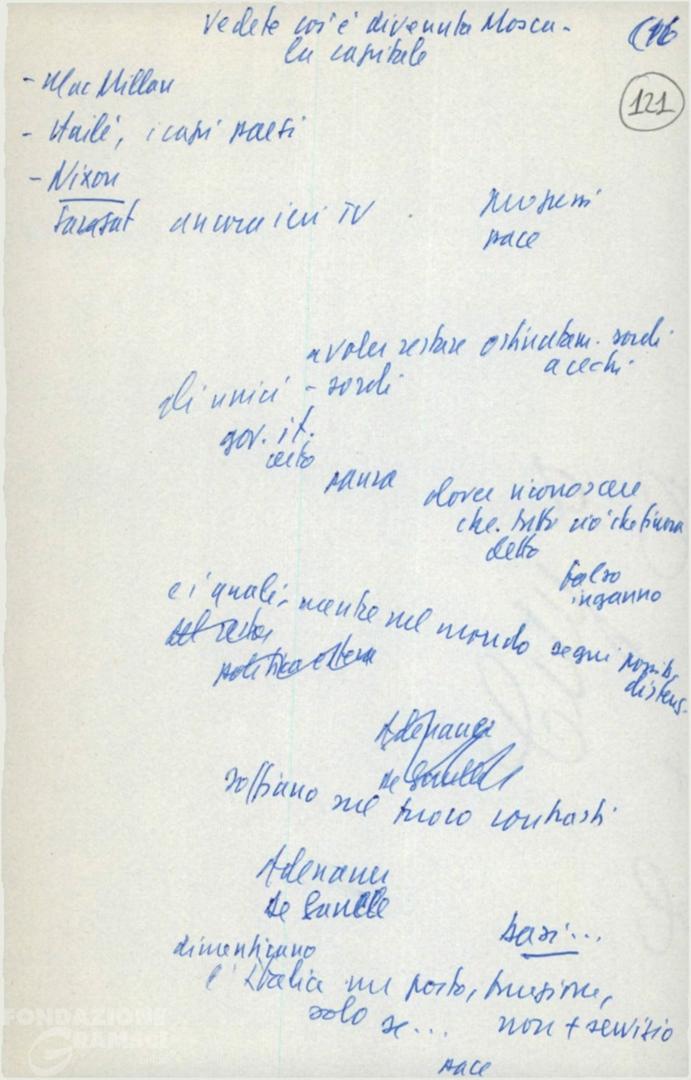 Vedete cos'è divenuta Mosca -
la capitale
121
- Mac Millan
- Hailé, i capi paesi
- Nixon
Saragat ancora ieri TV .
pace
a voler restare ostinatam. sordi
a cechi.
gli unici - sordi
gov. it.
certo
paura
dover riconoscere
che. tutto ciò che finora
detto
falso
inganno
e i quali, mentre nel mondo segni positiv.
distens.
del resto
politica estera
Adenauer
De Gaulle
soffiano sul fuoco contrasti
Adenauer
De Gaulle
basi...
dimenticano
l'Italia un posto, funzione,
solo se... non + servizio
pace
FONDAZIONE
GRAMSCI